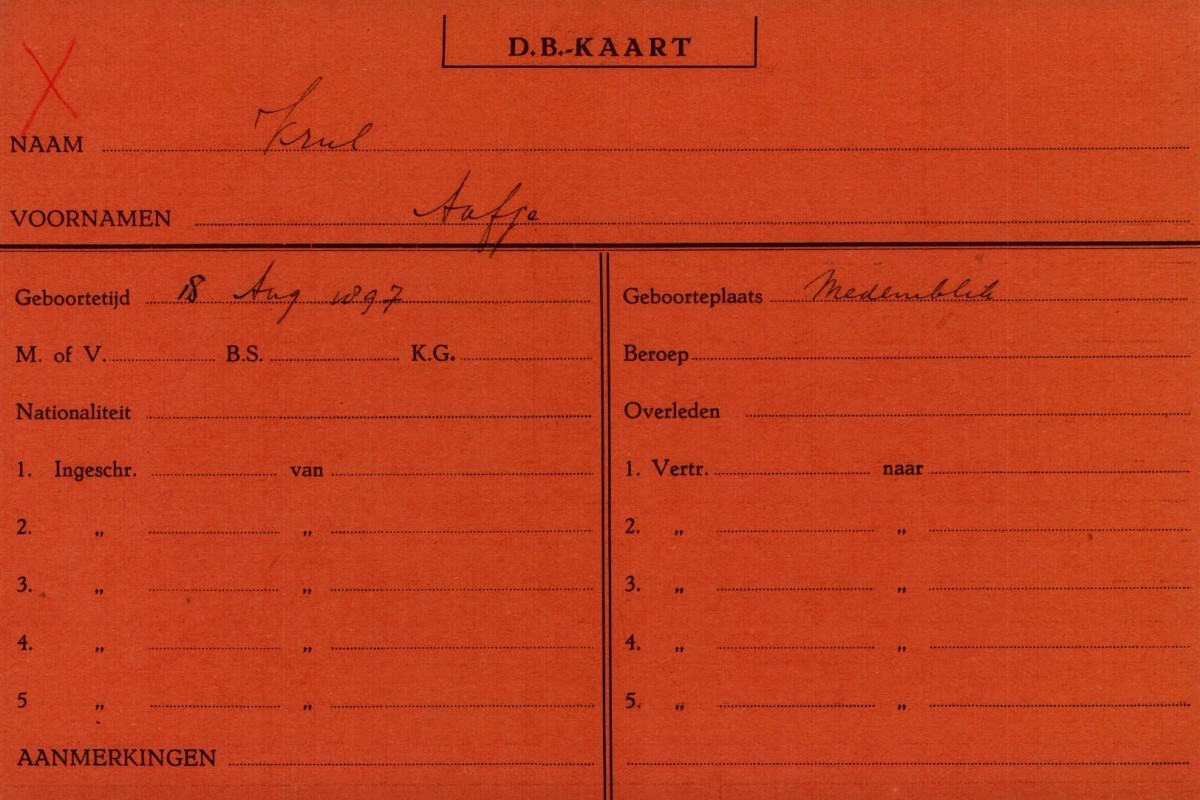 D.B.-KAART
NAAM Krul
VOORNAMEN Aafje
Geboortetijd 18 Aug 1897
M. of V. B.S. K.G.
Nationaliteit
1. Ingeschr. van
2. „ „
3. „ „
4. „ „
5 „ „
AANMERKINGEN
Geboorteplaats Medemblik
Beroep
Overleden
1. Vertr. naar
2. „ „
3. „ „
4. „ „
5. „ „